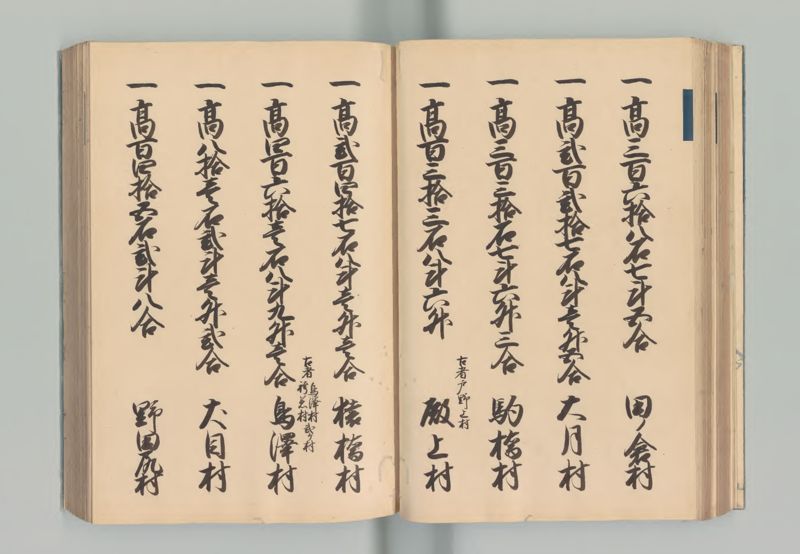 一高三百六拾八石七斗五合 田ノ倉村
一高弐百弐拾七石八斗壱升五合 大月村
一高三百三拾石七斗六升三合 駒橋村
古者戸野上村
一高百三拾三石八斗六升 殿上村
一高弐百四拾七石八斗壱升壱合 猿橋村
古者 鳥澤村
村 弐ケ村
一高四百六拾壱石八斗九升壱合 鳥澤村
一高八拾壱石弐斗壱升弐合 犬目村
一高百四拾五石弐斗八合 野田尻村